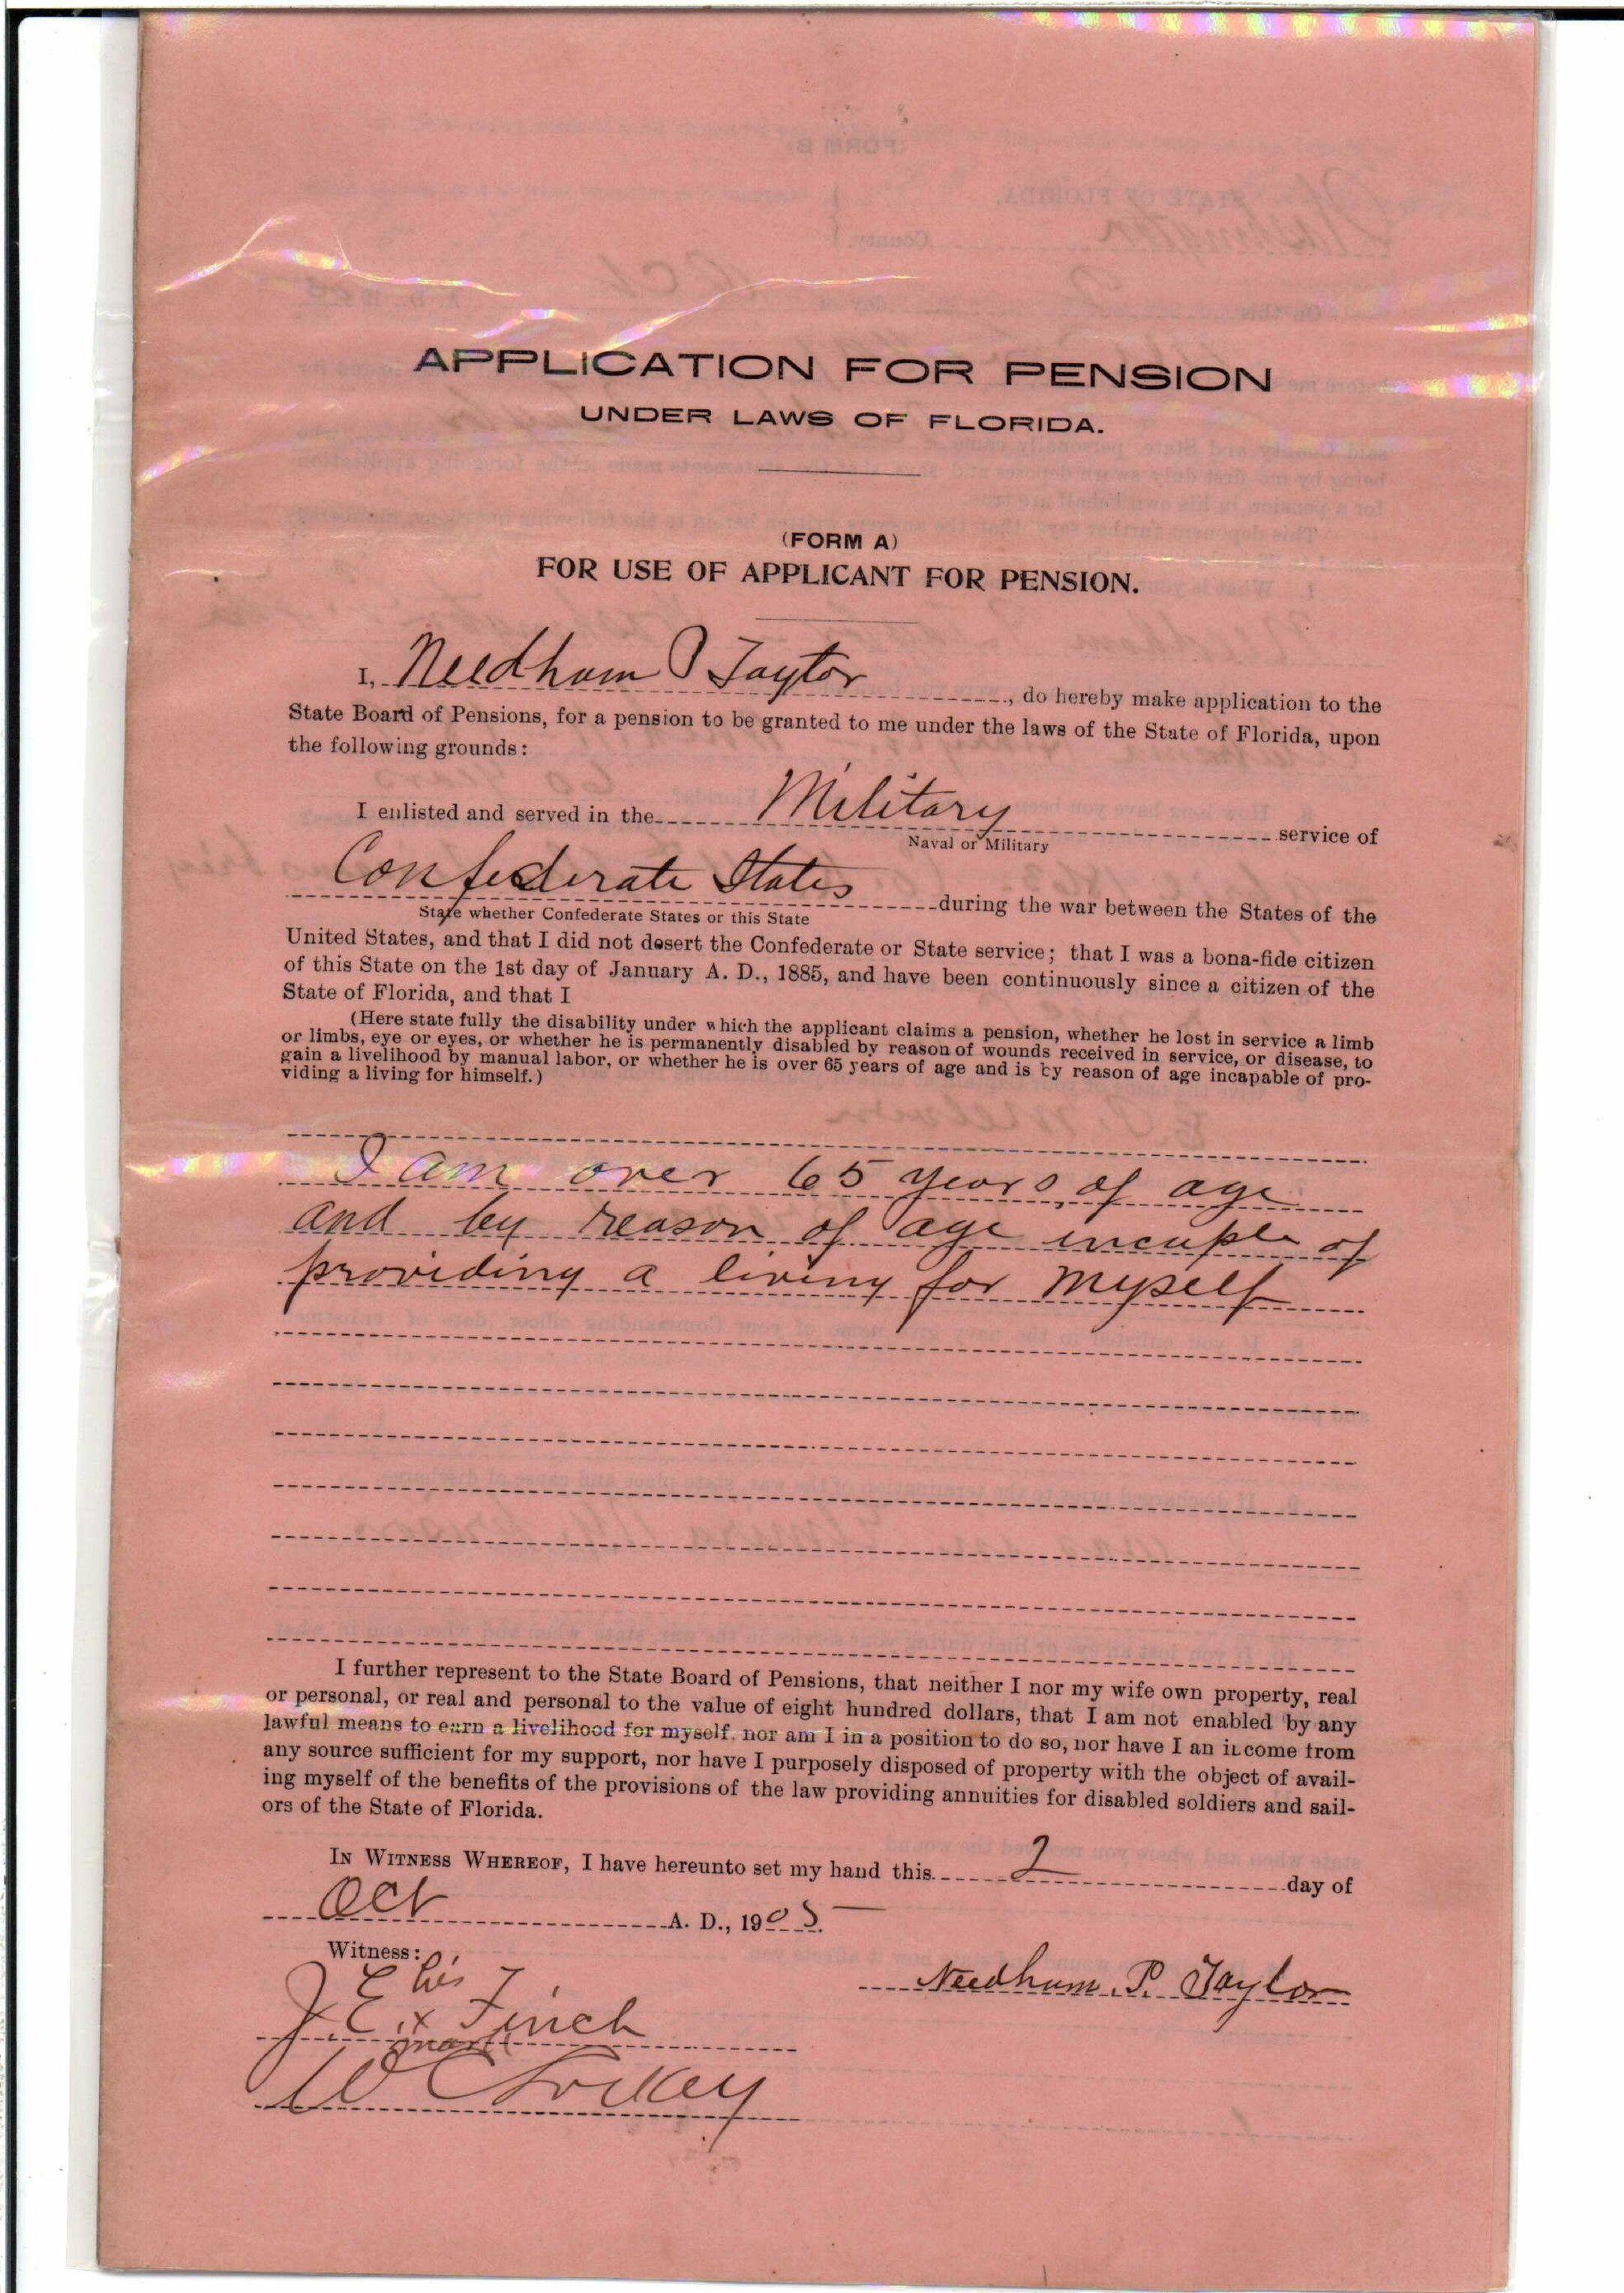 APPLICATION FOR PENSION
UNDER LAWS OF FLORIDA.
(FORM A)
FOR USE OF APPLICANT FOR PENSION.
I, Needham P Taylor, do hereby make application to the
State Board of Pensions, for a pension to be granted to me under the laws of the State of Florida, upon
the following grounds:
I enlisted and served in the Military service of
Naval or Military
Confederate States during the war between the States of the
State whether Confederate States or this State
United States, and that I did not desert the Confederate or State service; that I was a bona-fide citizen
of this State on the 1st day of January A. D., 1885, and have been continuously since a citizen of the
State of Florida, and that I
(Here state fully the disability under which the applicant claims a pension, whether he lost in service a limb
or limbs, eye or eyes, or whether he is permanently disabled by reason of wounds received in service, or disease, to
gain a livelihood by manual labor, or whether he is over 65 years of age and is by reason of age incapable of pro-
viding a living for himself.)
I am over 65 years of age
and by reason of age incaple of
providing a living for myself
I further represent to the State Board of Pensions, that neither I nor my wife own property, real
or personal, or real and personal to the value of eight hundred dollars, that I am not enabled by any
lawful means to earn a livelihood for myself, nor am I in a position to do so, nor have I an income from
any source sufficient for my support, nor have I purposely disposed of property with the object of avail-
ing myself of the benefits of the provisions of the law providing annuities for disabled soldiers and sail-
ors of the State of Florida.
IN WITNESS WHEREOF, I have hereunto set my hand this 2 day of
Oct A. D., 1905
Witness:
his
J. E. x Finch
mark
Needham P. Taylor
W C